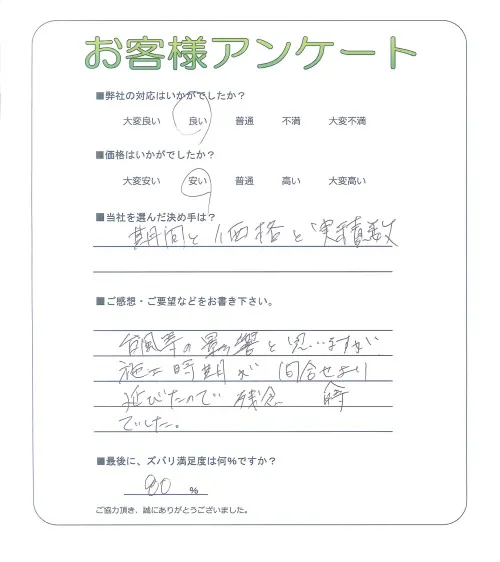 お客様アンケート
■弊社の対応はいかがでしたか?
大変良い 良い 普通 不満 大変不満
■価格はいかがでしたか?
大変安い 安い 普通 高い 大変高い
■当社を選んだ決め手は?
期間と価格と実績数
■ご感想・ご要望などをお書き下さい。
台風等の影響と思いますが
施工時期が問合せより
延びたので残念
時
でした。
■最後に、ズバリ満足度は何%ですか?
%
ご協力頂き、誠にありがとうございました。